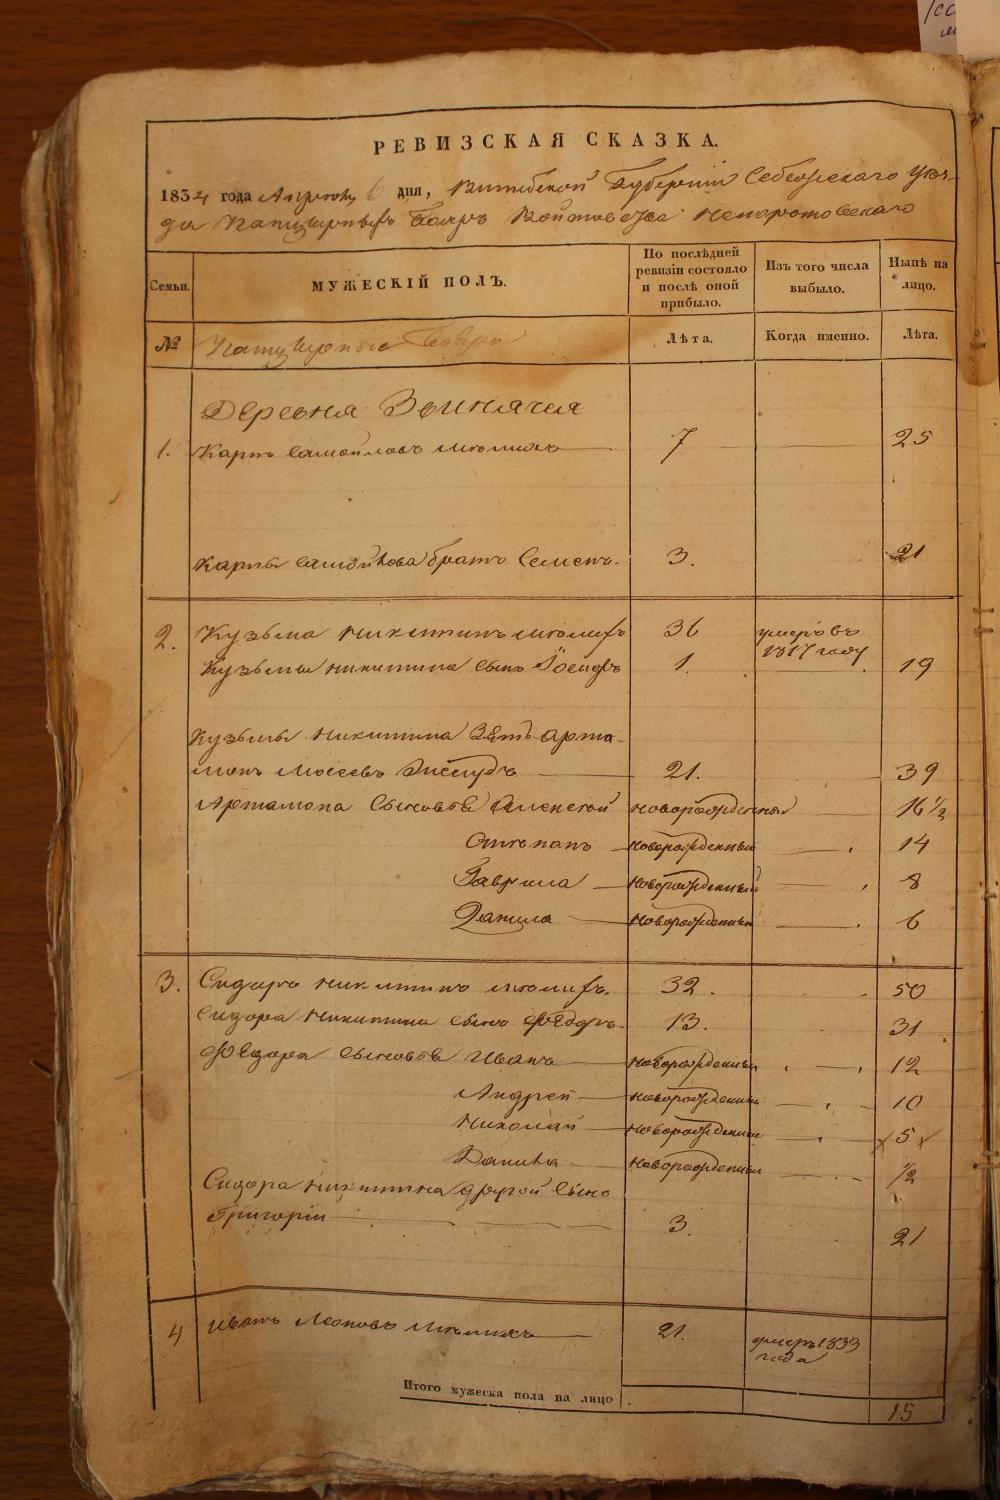 РЕВИЗСКАЯ СКАЗКА.
1834 года Апреля 6 дня, Витебской Губернии Себежскаго Уез-
да Панцырныхъ Бояръ Войтовства Непоротовскаго
Семьи.
МУЖЕСКІЙ ПОЛЪ.
По послѣдней ревизіи состояло и послѣ оной прибыло.
Изъ того числа выбыло.
Нынѣ на лицо.
№
Панцырные Бояра
Лѣта.
Когда именно.
Лѣта.
Деревня
1. Карпъ Самойловъ 7 25
Карпа Самойлова братъ Семенъ. 3. 21
2. Кузьма Никитинъ 36 умеръ въ 1817 году
Кузьмы Никитина сынъ Іосифъ 1. 19
Кузьмы Никитина Зять Арта-
монъ Моссевъ 21. 39
Артамона сыновья новорожденный 16 ½
Степанъ новорожденный 14
Гаврила новорожденный 8
Данила новорожденный 6
3. Сидоръ Никитинъ 32. 50
Сидора Никитина сынъ Ѳедоръ. 13. 31
Ѳедора сыновья Иванъ новорожденный 12
Андрей новорожденный 10
Николай новорожденный 5
Данила новорожденный ½
Сидора Никитина другой сынъ
Григорій 3. 21
4 Иванъ Леоновъ 21. умеръ 1833 года
Итого мужеска пола на лицо 15